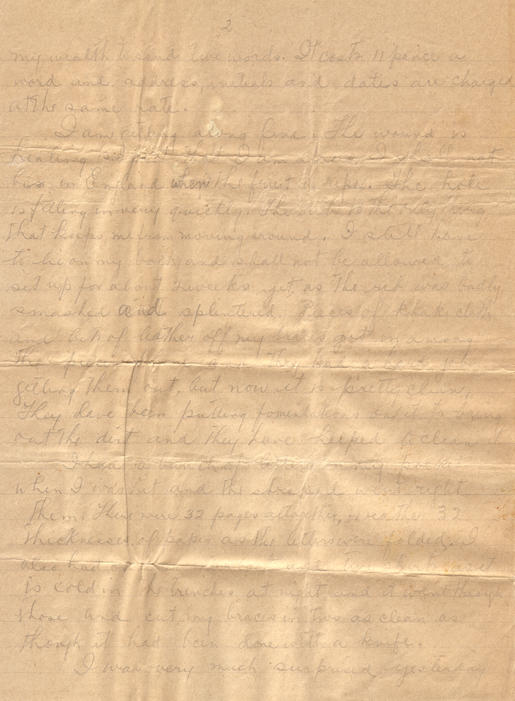 2
my wealth to send two words. It costs 11 pence a
word and address, initials and dates are charged
at the same rate.
I am getting along fine. The wound is
healing so well that I am afraid I shall not
be in England when the fruit is ripe. The hole
is filling in very quickly. The rib is the only thing
that keeps me from moving around. I still have
to lie on my back and shall not be allowed to
sit up for about 2 weeks yet, as the rib was badly
smashed and splintered. Pieces of khaki cloth
and bits of leather off my braces got in among
the they had a
getting them out, but now it is pretty clean,
They have been putting fomentations on it to bring
out the dirt and they have helped to clean it
I had a bunch of letters in my
when I was hit and the shrapnel went right
them. There were 32 pages altogether, or rather 32
thicknesses of paper as the letters were folded. I
also had on and two shirts as it
is cold in the trenches at night and it went through
those and cut my braces in two as clean as
though it had been done with a knife.
I was very much surprised yesterday